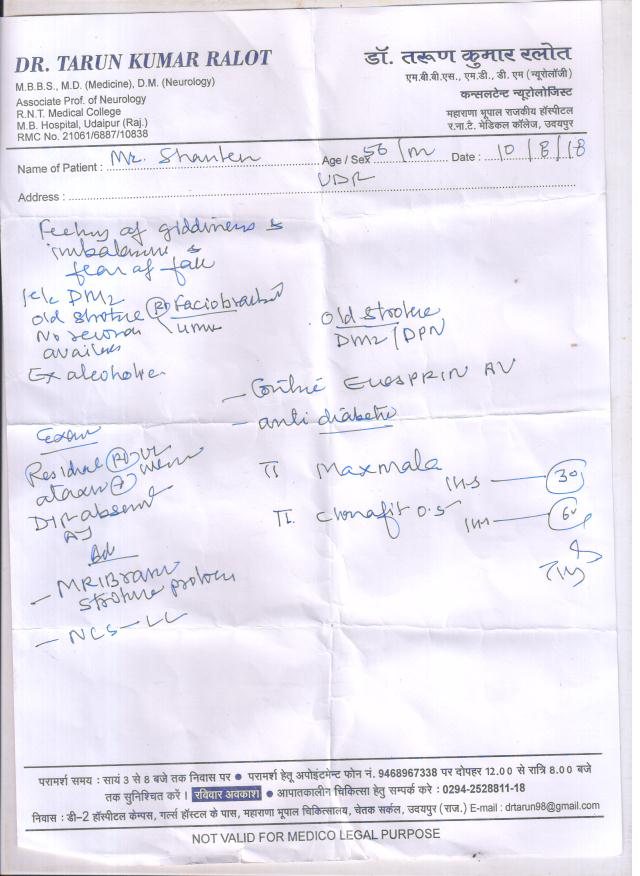 DR. TARUN KUMAR RALOT
M.B.B.S., M.D. (Medicine), D.M. (Neurology)
Associate Prof. of Neurology
R.N.T. Medical College
M.B. Hospital, Udaipur (Raj.)
RMC No. 21061/6887/10838
डॉ. तरूण कुमार रलोत
एम.बी.बी.एस., एम.डी., डी. एम (न्यूरोलॉजी)
कन्सलटेन्ट न्यूरोलोजिस्ट
महाराणा भूपाल राजकीय हॉस्पीटल
र.ना.टे. मेडिकल कॉलेज, उदयपुर
Name of Patient : Mr. Age / Sex 56/m Date : 10/8/18
UDR
Address :
Feeling of giddiness &
imbalance &
fear of fall
DM2
old stroke Rt faciobrachial
UMN
No records
available
Ex alcoholic
old stroke
DM2/DPN
- ECOSPRIN AV
- anti diabetic
Exam
Residual Rt
DTR absent
AJ
Maxmala 30
0.5 60
Ad
- MRI Brain
stroke protocol
- NCS - LL
परामर्श समय : सायं 3 से 8 बजे तक निवास पर ● परामर्श हेतू अपोइंटमेन्ट फोन नं. 9468967338 पर दोपहर 12.00 से रात्रि 8.00 बजे
तक सुनिश्चित करें । रविवार अवकाश ● आपातकालीन चिकित्सा हेतु सम्पर्क करे : 0294-2528811-18
निवास : डी-2 हॉस्पीटल केम्पस, गर्ल्स हॉस्टल के पास, महाराणा भूपाल चिकित्सालय, चेतक सर्कल, उदयपुर (राज.) E-mail : drtarun98@gmail.com
NOT VALID FOR MEDICO LEGAL PURPOSE